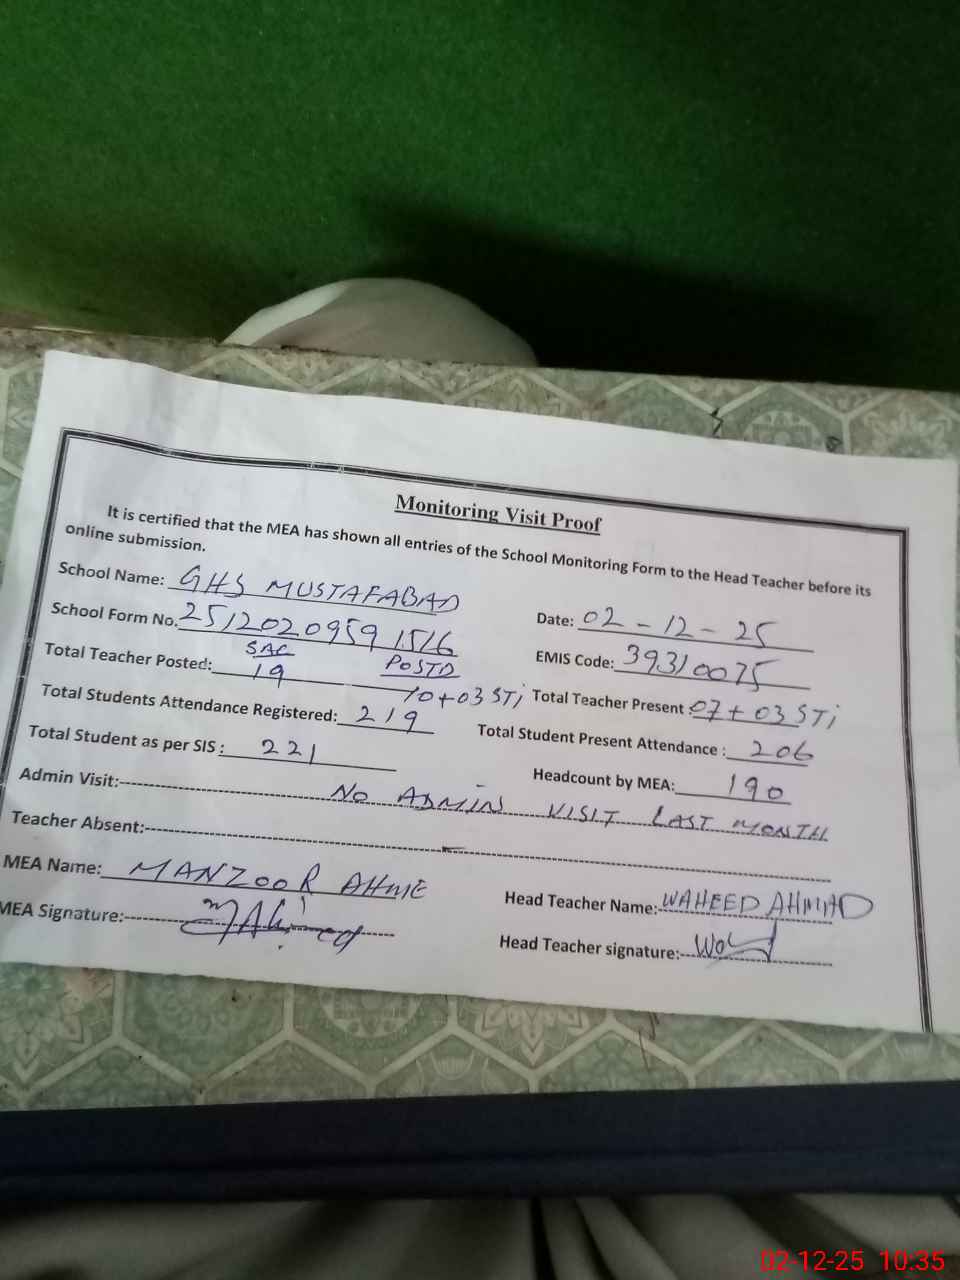 Monitoring Visit Proof
It is certified that the MEA has shown all entries of the School Monitoring Form to the Head Teacher before its
online submission.
School Name: GHS MUSTAFABAD
Date: 02-12-25
School Form No. 25120209591516
EMIS Code: 39310075
SAC POSTD
Total Teacher Posted: 19 10+03 STi
Total Teacher Present: 07+03 STi
Total Students Attendance Registered: 219
Total Student Present Attendance: 206
Total Student as per SIS: 221
Headcount by MEA: 190
Admin Visit: NO ADMIN VISIT LAST MONTH
Teacher Absent:
MEA Name: MANZOOR AHME
Head Teacher Name: WAHEED AHMAD
MEA Signature: MAhmed
Head Teacher signature:
02-12-25 10:35